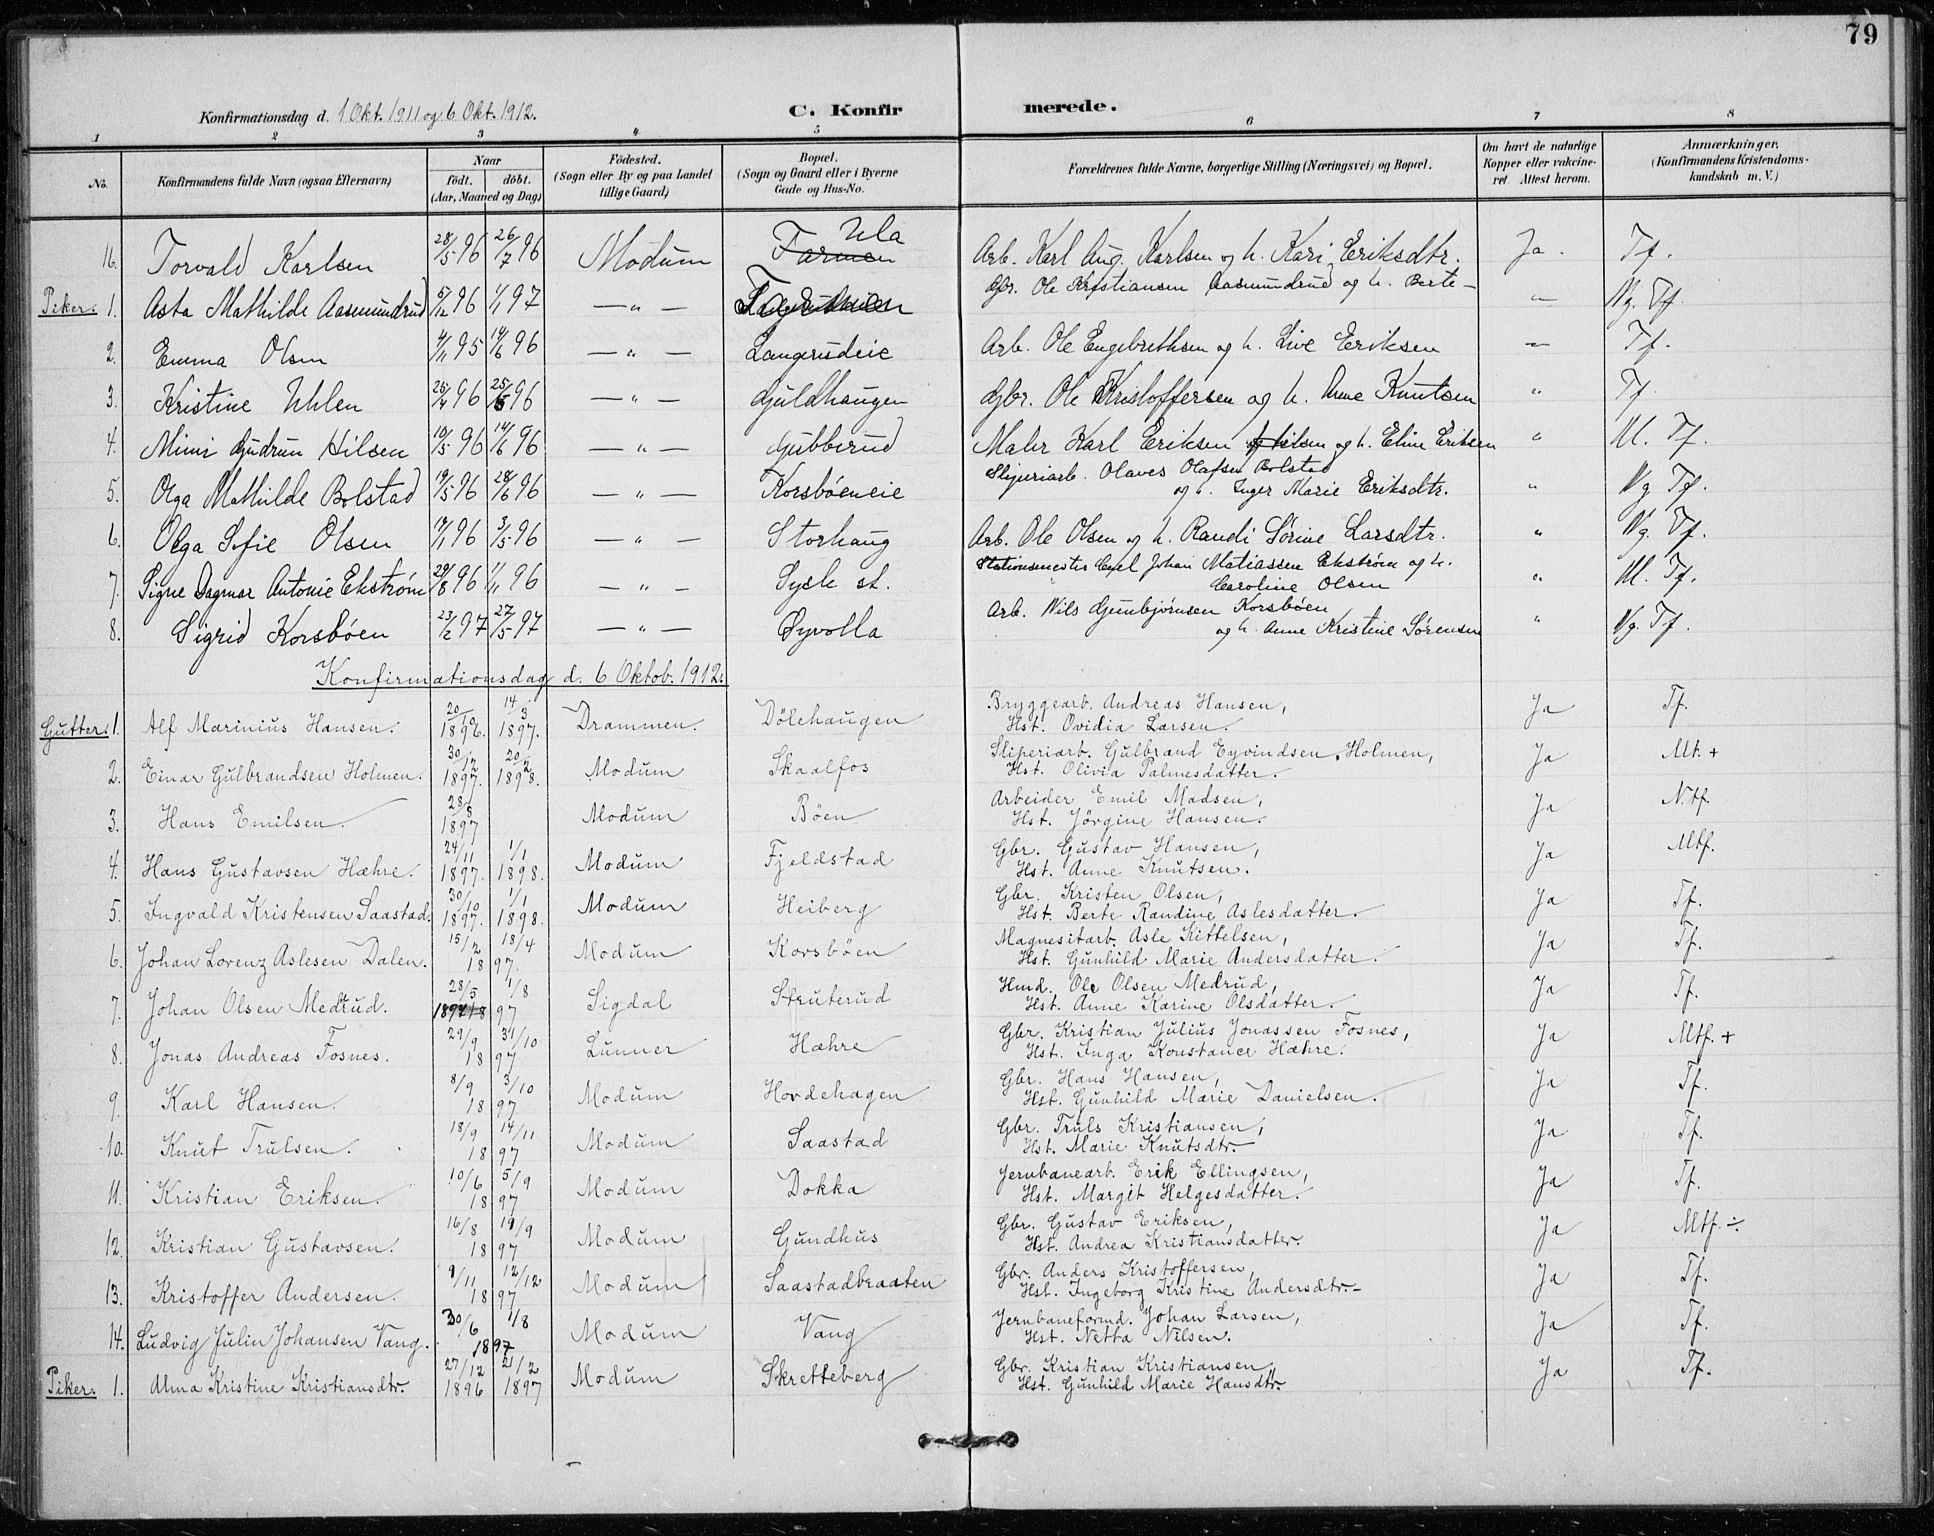 79
Konfirmationsdag d. 1 Okt. 1911 og 6 Okt. 1912. C. Konfir merede.
1 2 3 4 5 6 7 8
No. Konfirmandens fulde Navn (ogsaa Efternavn) Naar født, døbt. (Aar, Maaned og Dag) Fødested. (Sogn eller By og paa Landet tillige Gaard) Bopæl. (Sogn og Gaard eller i Byerne Gade og Hus-No. Forældrenes fulde Navne, borgerlige Stilling (Næringsvei) og Bopæl. Om havt de naturlige Kopper eller vakcineret. Attest herom. Anmærkninger. (Konfirmandens Kristendomskundskab m. V.)
16. Torvald Karlsen 28/5 96 26/7 96 Modum Farmen Ula Arb. Karl Aug. Karlsen og h. Kari Eriksdtr. Ja. Tf.
Piker. 1. Asta Mathilde Aasmundrud 5/12 96 1/1 97 — " — Gbr. Ole Kristiansen Aasmundrud og h. Berte — " Ng. Tf.
2. Emma Olsen 4/11 95 14/6 96 — " — Langerudeie Arb. Ole Engebrethsen og h. Live Eriksen " Tf.
3. Kristine Uhlen 26/4 96 25/5 96 — " — Guldhaugen Gbr. Ole Kristoffersen og h. Anne Knutsen " Tf.
4. Mimi Gudrun Hilsen 10/5 96 14/6 96 — " — Gubberud Maler Karl Eriksen Hilsen og h. Eline Eriksen " M. Tf.
5. Olga Mathilde Bolstad 19/5 96 28/6 96 — " — Korsbøeneie Sliperiarb. Olaves Olafsen Bolstad
og h. Inger Marie Eriksdtr. " Ng Tf.
6. Olga Sofie Olsen 17/1 96 3/5 96 — " — Storhaug Arb. Ole Olsen og h. Randi Sørine Larsdtr. " Ng. Tf.
7. Signe Dagmar Antonie Ekstrøm 29/8 96 1/11 96 — " — Sysle st. Stationsmester Carl Johan Matiassen Ekstrøm og h.
Caroline Olsen " M. Tf.
8. Sigrid Korsbøen 23/2 97 27/5 97 — " — Øyvolla Arb. Nils Gunbjørnsen Korsbøen
og h. Anne Kristine Sørensen " Ng. Tf.
Konfirmationsdag d. 6 Oktob. 1912.
Gutter. 1. Alf Marinius Hansen. 20/10 1896. 14/3 1897. Drammen. Dölehaugen Bryggearb. Andreas Hansen,
Hst. Ovidia Larsen. Ja Tf.
2. Einar Gulbrandsen Holmen. 30/12 1897. 20/2 1898. Modum Skaalfos Sliperiarb. Gulbrand Eyvindsen Holmen,
Hst. Olivia Palmesdatter. Ja Mt. +
3. Hans Emilsen. 28/8 1897 Modum Böen Arbeider Emil Madsen,
Hst. Jörgine Hansen. Ja Ntf.
4. Hans Gustavsen Hæhre. 24/11 1897. 1/1 1898. Modum Fjeldstad Gbr. Gustav Hansen,
Hst. Anne Knutsen. Ja Mtf.
5. Ingvald Kristensen Saastad. 30/10 1897. 1/1 1898. Modum Heiberg Gbr. Kristen Olsen,
Hst. Berte Randine Aslesdatter. Ja Tf.
6. Johan Lorenz Aslesen Dalen. 15/2 18/4 1897. Modum Korsböen Magnesitarb. Asle Kittelsen,
Hst. Gunhild Marie Andersdatter. Ja Tf.
7. Johan Olsen Medrud. 28/5 1/8 1897 Sigdal Struterud Hmd. Ole Olsen Medrud,
Hst. Anne Karine Olsdatter. Ja Tf.
8. Jonas Andreas Fosnes. 29/9 31/10 1897 Lunner Hæhre Gbr. Kristian Julius Jonassen Fosnes,
Hst. Inga Konstance Hæhre. Ja Mtf. +
9. Karl Hansen. 8/9 3/10 1897 Modum Hovdehagen Gbr. Hans Hansen,
Hst. Gunhild Marie Danielsen. Ja Tf.
10. Knut Trulsen. 18/9 14/11 1897 Modum Saastad Gbr. Truls Kristiansen,
Hst. Marie Knutsdtr. Ja Tf.
11. Kristian Eriksen. 10/6 5/9 1897 Modum Dokka Jernbanearb. Erik Ellingsen,
Hst. Margit Helgesdatter. Ja Tf.
12. Kristian Gustavsen. 16/8 19/9 1897 Modum Gundhus Gbr. Gustav Eriksen,
Hst. Andrea Kristiansdatter. Ja Mtf. ÷
13. Kristoffer Andersen. 9/11 12/12 1897 Modum Saastadbraaten Gbr. Anders Kristoffersen,
Hst. Ingeborg Kristine Andersdtr. Ja Tf.
14. Ludvig Julin Johansen Vang. 30/6 1/8 1897 Modum Vang Jernbaneformd. Johan Larsen,
Hst. Netta Nilsen. Ja Tf.
Piker. 1. Alma Kristine Kristiansdtr. 27/12 1896 21/2 1897 Modum Skretteberg Gbr. Kristian Kristiansen,
Hst. Gunhild Marie Hansdtr. Ja Tf.